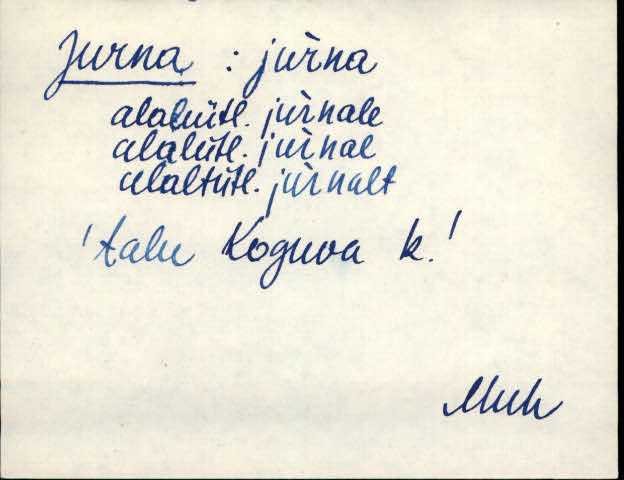 Jurna : jur̀na
alaleütl. jur̀nale
alalütl. jur̀nal
alaltütl. jur̀nalt
'talu Koguva k.'
Muh